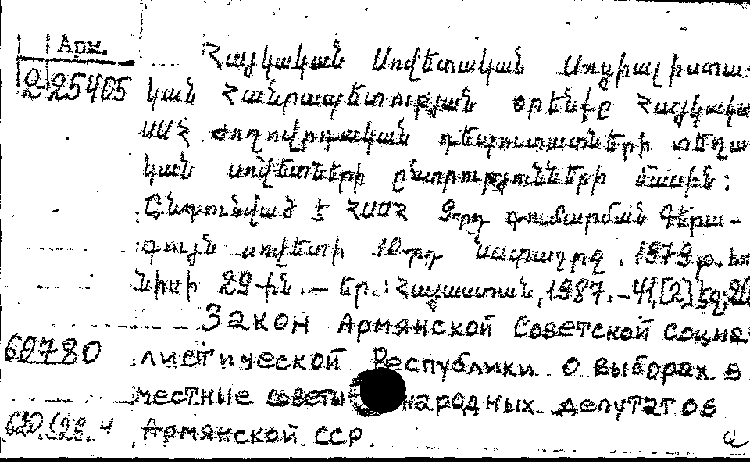 Арм.
2 25405
Հայկական Սովետական Սոցիալիստա-
կան Հանրապետության օրենքը Հայկական
ՍՍՀ ժողովրդական դեպուտատների տեղա-
կան սովետների ընտրությունների մասին:
Ընդունված է ՀՍՍՀ 9-րդ գումարման Գերա-
գույն սովետի 10-րդ նստաշրջ. 1979թ.
նիսի 29-ին. – Եր.: Հայաստան, 1987. – 41,[2] էջ;
Закон Армянской Советской социа-
60780 листической Республики о выборах в
местные советы народных депутатов
Армянской ССР.